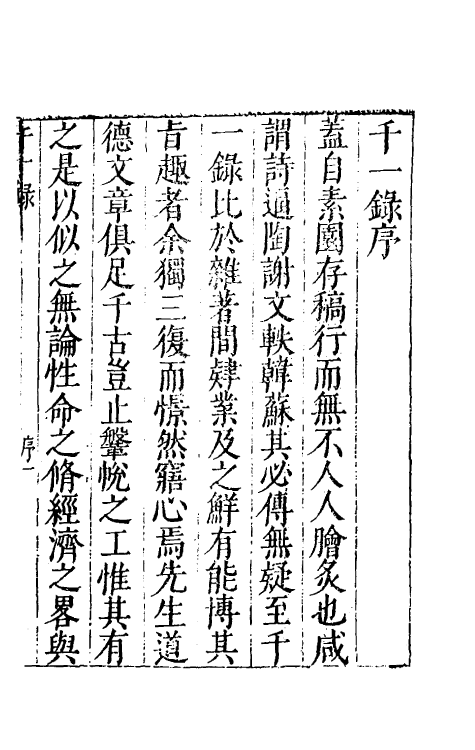 千一錄序
蓋自素園存稿行而無不人人膾炙也咸
謂詩適陶謝文軼韓蘇其必傳無疑至千
一錄比於雜著間肄業及之鮮有能博其
旨趣者余獨三復而憬然寤心焉先生道
德文章俱足千古豈止鞶帨之工惟其有
之是以似之無論性命之脩經濟之畧與
千一錄 序 一